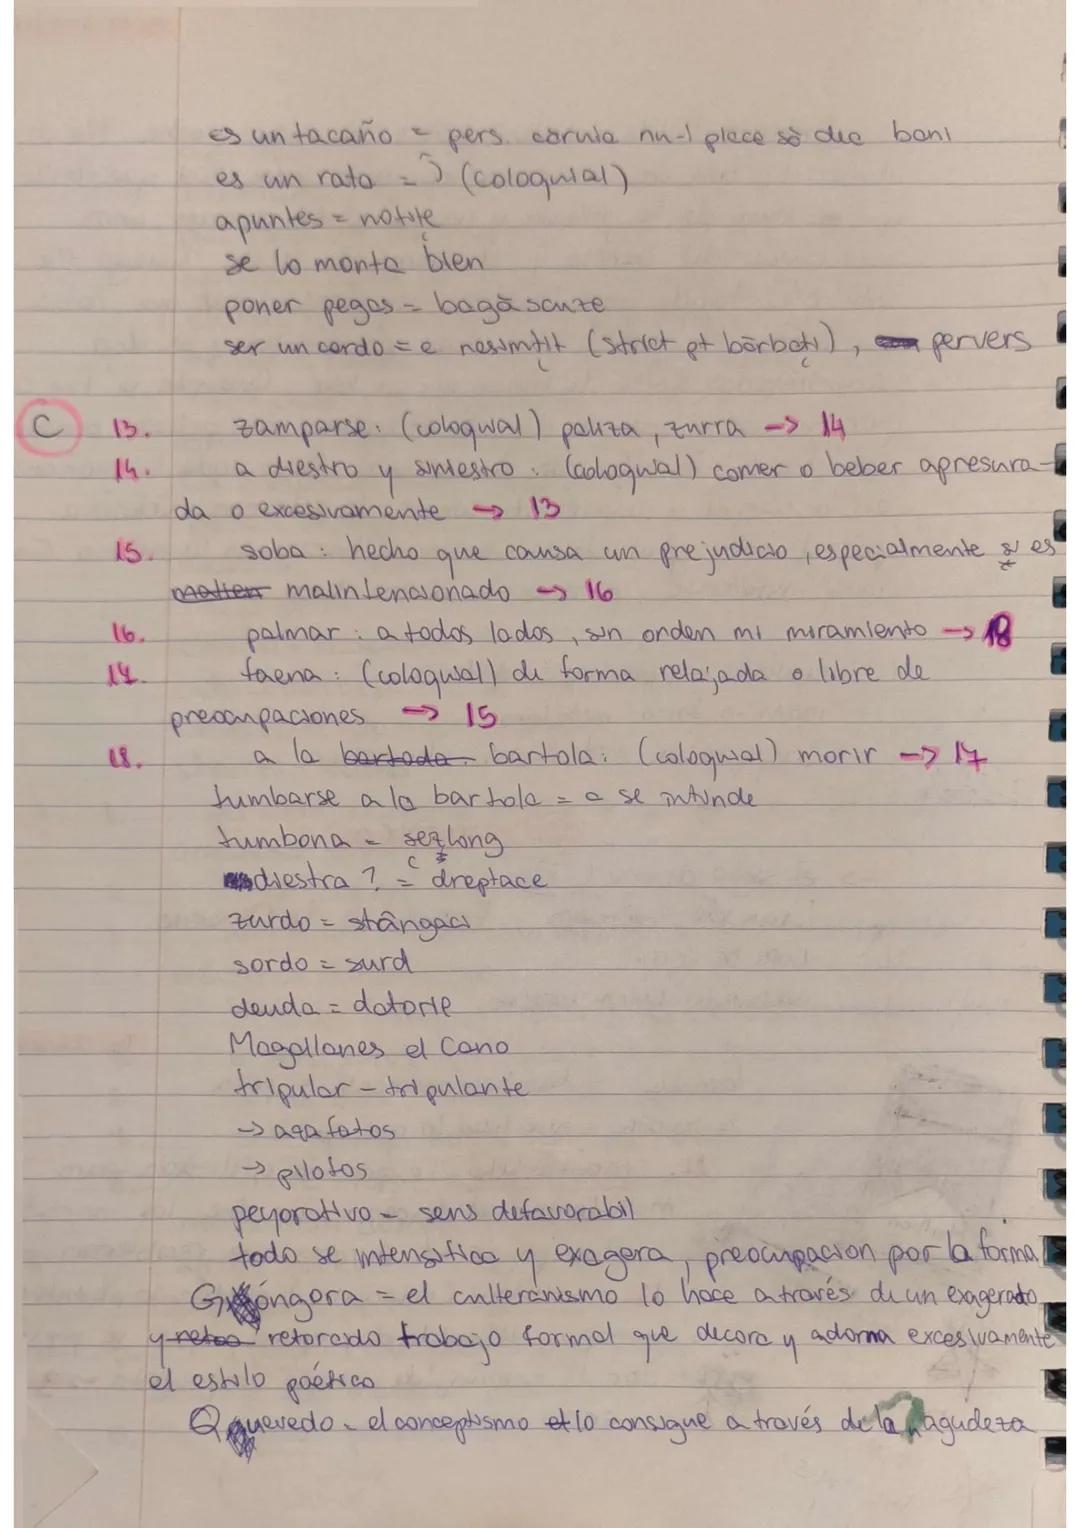 es un tacaño = pers. căruia nu-i place să dea bani
es un rata = ) (coloquial)
apuntes = notițe
se lo monta bien
poner pegas = bagă scuze
ser un cerdo = e nesimțit (strict pt bărbați), pervers
C 13. zamparse: (coloquial) paliza, zurra -> 14
14. a diestro y siniestro: (coloquial) comer o beber apresura-
da o excesivamente -> 13
15. soba: hecho que causa un prejudicio, especialmente si es
malintencionado -> 16
16. palmar: a todos lados, sin orden mi miramiento -> 18
17. faena: (coloquial) de forma relajada o libre de
preocupaciones -> 15
18. a la bartoda bartola: (coloquial) morir -> 17
tumbarse a la bartola = a se întinde
tumbona = șezlong
diestra ? = dreptace
zurdo = stângaci
sordo = surd
deuda = datorie
Magallanes el Cano
tripular - tripulante
-> aqafatos
-> pilotos
peyorativo = sens defavorabil
todo se intensifica y exagera, preocupacion por la forma
Góngora = el culteranismo lo hace a través de un exagerado
y retorcido trabajo formal que decora y adorna excesivamente
el estilo poético
Quevedo - el conceptismo lo consigue a través de la agudeza